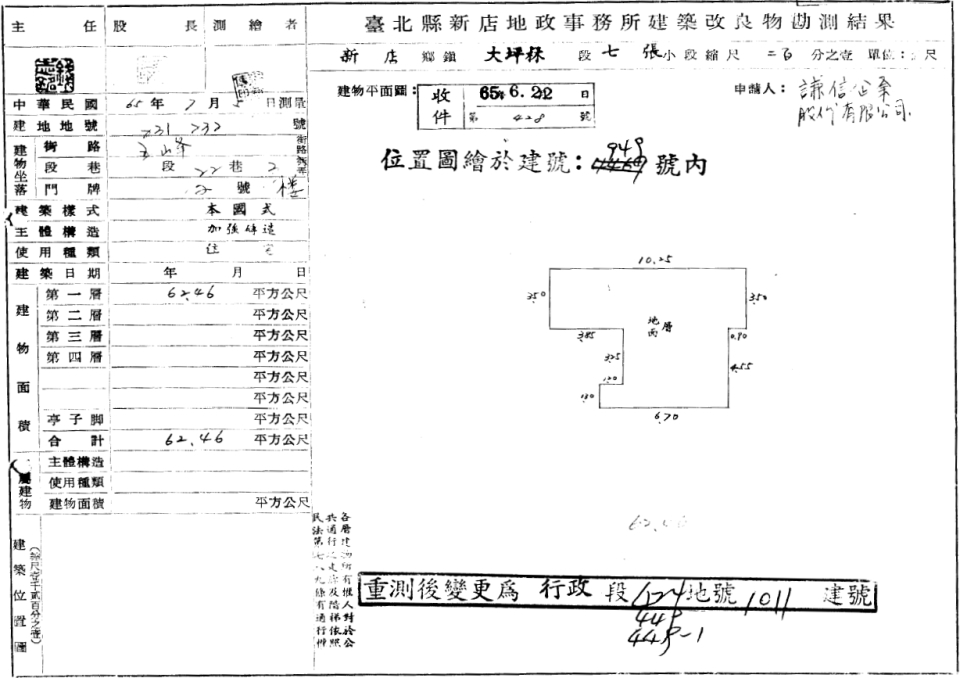 臺北縣新店地政事務所建築改良物勘測結果
主任 股長 測繪者
新店 鄉鎮 大坪林 段 七張 小段 縮尺 二百 分之壹 單位:尺
建物平面圖:
收件 65年6.22日
第 428 號
申請人: 謙信企業
股份有限公司
位置圖繪於建號: 949 號內
中華民國 65年7月5日測量
建地地號 731 732 號
建物坐落
街路
街路
段巷 段 22 巷 2
門牌 2 號 樓
建築樣式 本國式
主體構造 加強磚造
使用種類 住宅
建築日期 年 月 日
建物面積
第一層 62.46 平方公尺
第二層 平方公尺
第三層 平方公尺
第四層 平方公尺
平方公尺
平方公尺
亭子脚 平方公尺
合計 62.46 平方公尺
屬建物
主體構造
使用種類
建物面積 平方公尺
建築位置圖
10.25
3.50
3.50
地面層
3.85
0.90
3.25
4.55
1.20
1.30
6.70
62.46
各層建物所有權人對於公
重測後變更為 行政 段 624 地號 1011 建號
449
449-1